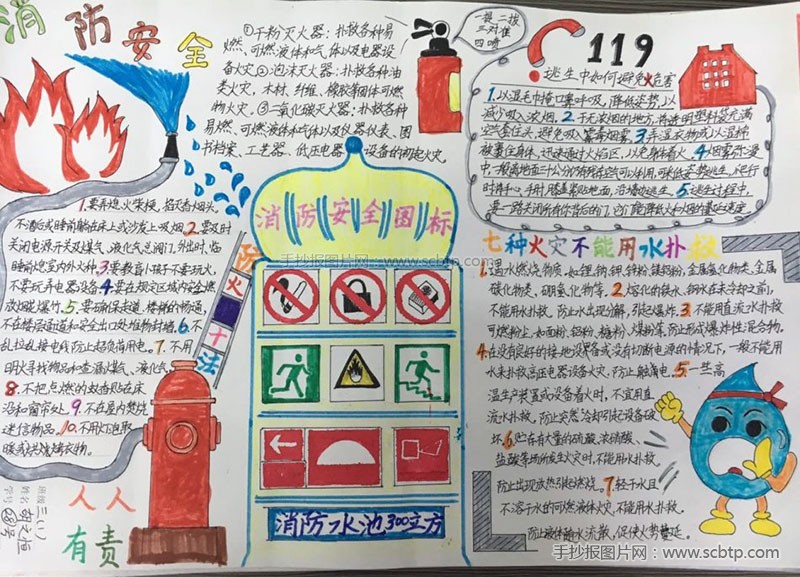 消防安全
①干粉灭火器：扑救各种易
燃、可燃液体和气体以及电器设
备火灾②泡沫灭火器：扑救各种油
类火灾，木材、纤维、橡胶等固体可燃
物火灾。③二氧化碳灭火器：扑救各种
易燃、可燃液体和气体以及仪器仪表、图
书档案、工艺器、低压电器设备的初起火灾。
一提二拔
三对准
四喷
119
逃生中如何避免火危害
1.以湿毛巾掩口鼻呼吸，降低姿势，以
减少吸入浓烟。2.于无浓烟的地方，将透明塑料袋充满
空气套住头，避免吸入
3.弄湿衣物或以湿棉
被裹住身体，迅速通过火焰区，以免身体着火。4.烟雾弥漫
中，一般离地面三十公分仍有残存空气可以利用，可采低姿势逃生，爬行
时将手心、手肘、膝盖紧贴地面，沿墙边逃生。5.逃生过程中，
要一路关闭所有你背后的门，它能降低火和烟的蔓延速度
防火十法
1.要弄熄火柴梗，掐灭香烟头。
不酒后或睡前躺在床上或沙发上吸烟。2.要及时
关闭电源开关及煤气、液化气总阀门，外出时、临
睡前熄室内外火种。3.要教育小孩子不要玩火，
不要玩弄电器设备。4.要在规定区域内安全燃
放烟花爆竹。5.要确保走道、楼梯的畅通，
不在楼层通道和安全出口处堆物封堵。6.不
乱拉乱接电线防止超负荷用电。7.不用
明火寻找物品和查漏煤气、液化气
8.不把点燃的蚊香贴在床
沿和窗帘处。9.不在屋内焚烧
迷信物品。10.不用灯泡取
暖或烘烧烤衣物。
消防安全图标
手抄报图片网：www.scbtp.com
消防水池300立方
七种火灾不能用水扑救
1.遇水燃烧物质，如锂、钠、钾、锌粉、镁铝粉、金属氢化物类、金属
碳化物类、硼氢化物等。2.熔化的铁水、钢水在未冷却之前，
不能用水扑救，防止水出现分解，引起爆炸。3.不能用直流水扑救
可燃粉尘，如面粉、铝粉、糖粉、煤粉等，防止形成爆炸性混合物。
4.在没有良好的接地设备或没有切断电源的情况下，一般不能用
水来扑救高压电器设备火灾，防止触漏电。5.一些高
温生产装置或设备着火时，不宜用直
流水扑救，防止突然冷却引起设备破
坏。6.贮存有大量的硫酸、浓硝酸、
盐酸等场所发生火灾时，不能用水扑救，
防止出现放热引起燃烧。7.轻于水且
不溶于水的可燃液体火灾，不能用水扑救，
防止液体随水流散，促使火势蔓延。
人人
有责
班级 三(1)
姓名
学号
手抄报图片网：www.scbtp.com